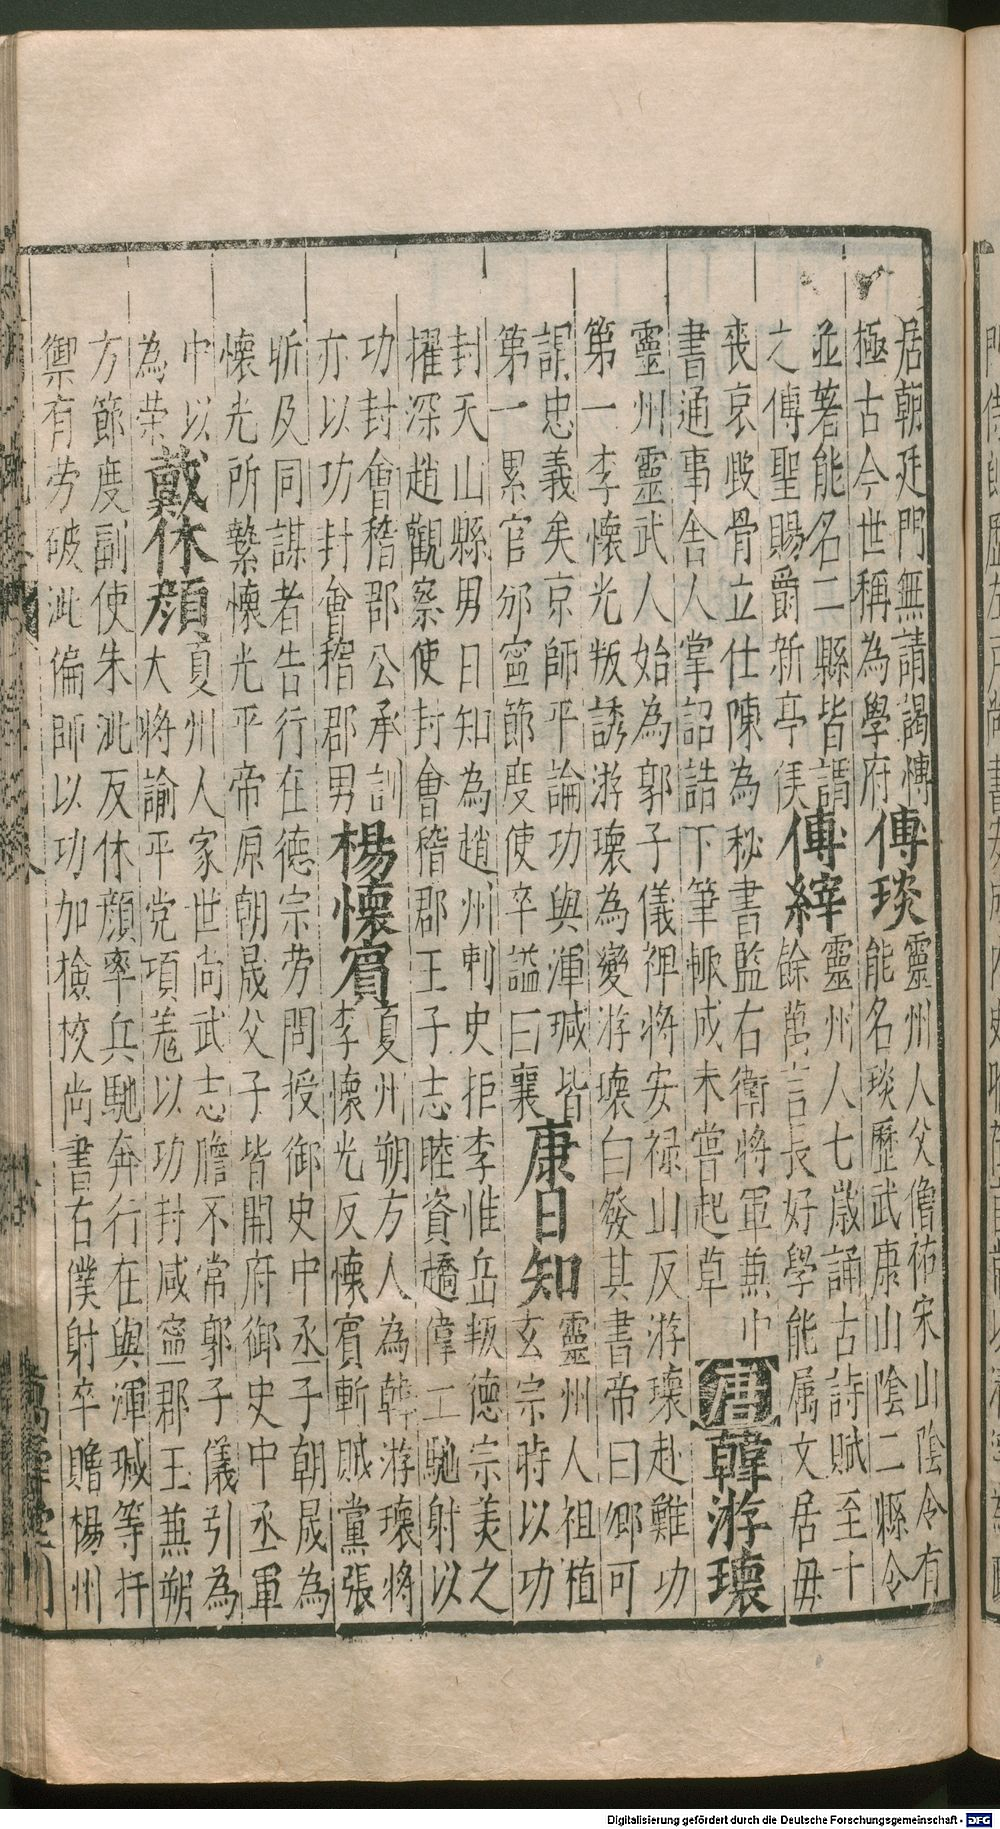 居朝廷門無請謁博
極古今世稱為學府
傅琰
靈州人父僧祐宋山陰令有
能名琰歷武康山陰二縣令
並著能名二縣皆謂
之傅聖賜爵新亭侯
傅縡
靈州人七歲誦古詩賦至十
餘萬言長好學能属文居母
喪哀毀骨立仕陳為秘書監右衛將軍兼中
書通事舍人掌詔誥下筆輒成未嘗起草
唐韓游瓌
靈州靈武人始為郭子儀裨將安禄山反游瓌赴難功
第一李懷光叛誘游瓌為變游瓌白發其書帝曰卿可
謂忠義矣京師平論功與渾瑊皆
第一累官邠寧節度使卒謚曰襄
康日知
靈州人祖植
玄宗時以功
封天山縣男日知為趙州刺史拒李惟岳叛德宗美之
擢深趙觀察使封會稽郡王子志睦資趫偉工馳射以
功封會稽郡公承訓
亦以功封會稽郡男
楊懷賓
夏州朔方人為韓游瓌將
李懷光反懷賓斬賊黨張
昕及同謀者告行在德宗劳問授御史中丞子朝晟為
懷光所縶懷光平帝原朝晟父子皆開府御史中丞軍
中以
為荣
戴休顔
夏州人家世尚武志膽不常郭子儀引為
大將諭平党項羌以功封咸寧郡王兼朔
方節度副使朱泚反休顔率兵馳奔行在與渾瑊等扞
禦有劳破泚偏師以功加檢校尚書右僕射卒贈楊州
Digitalisierung gefördert durch die Deutsche Forschungsgemeinschaft - DFG